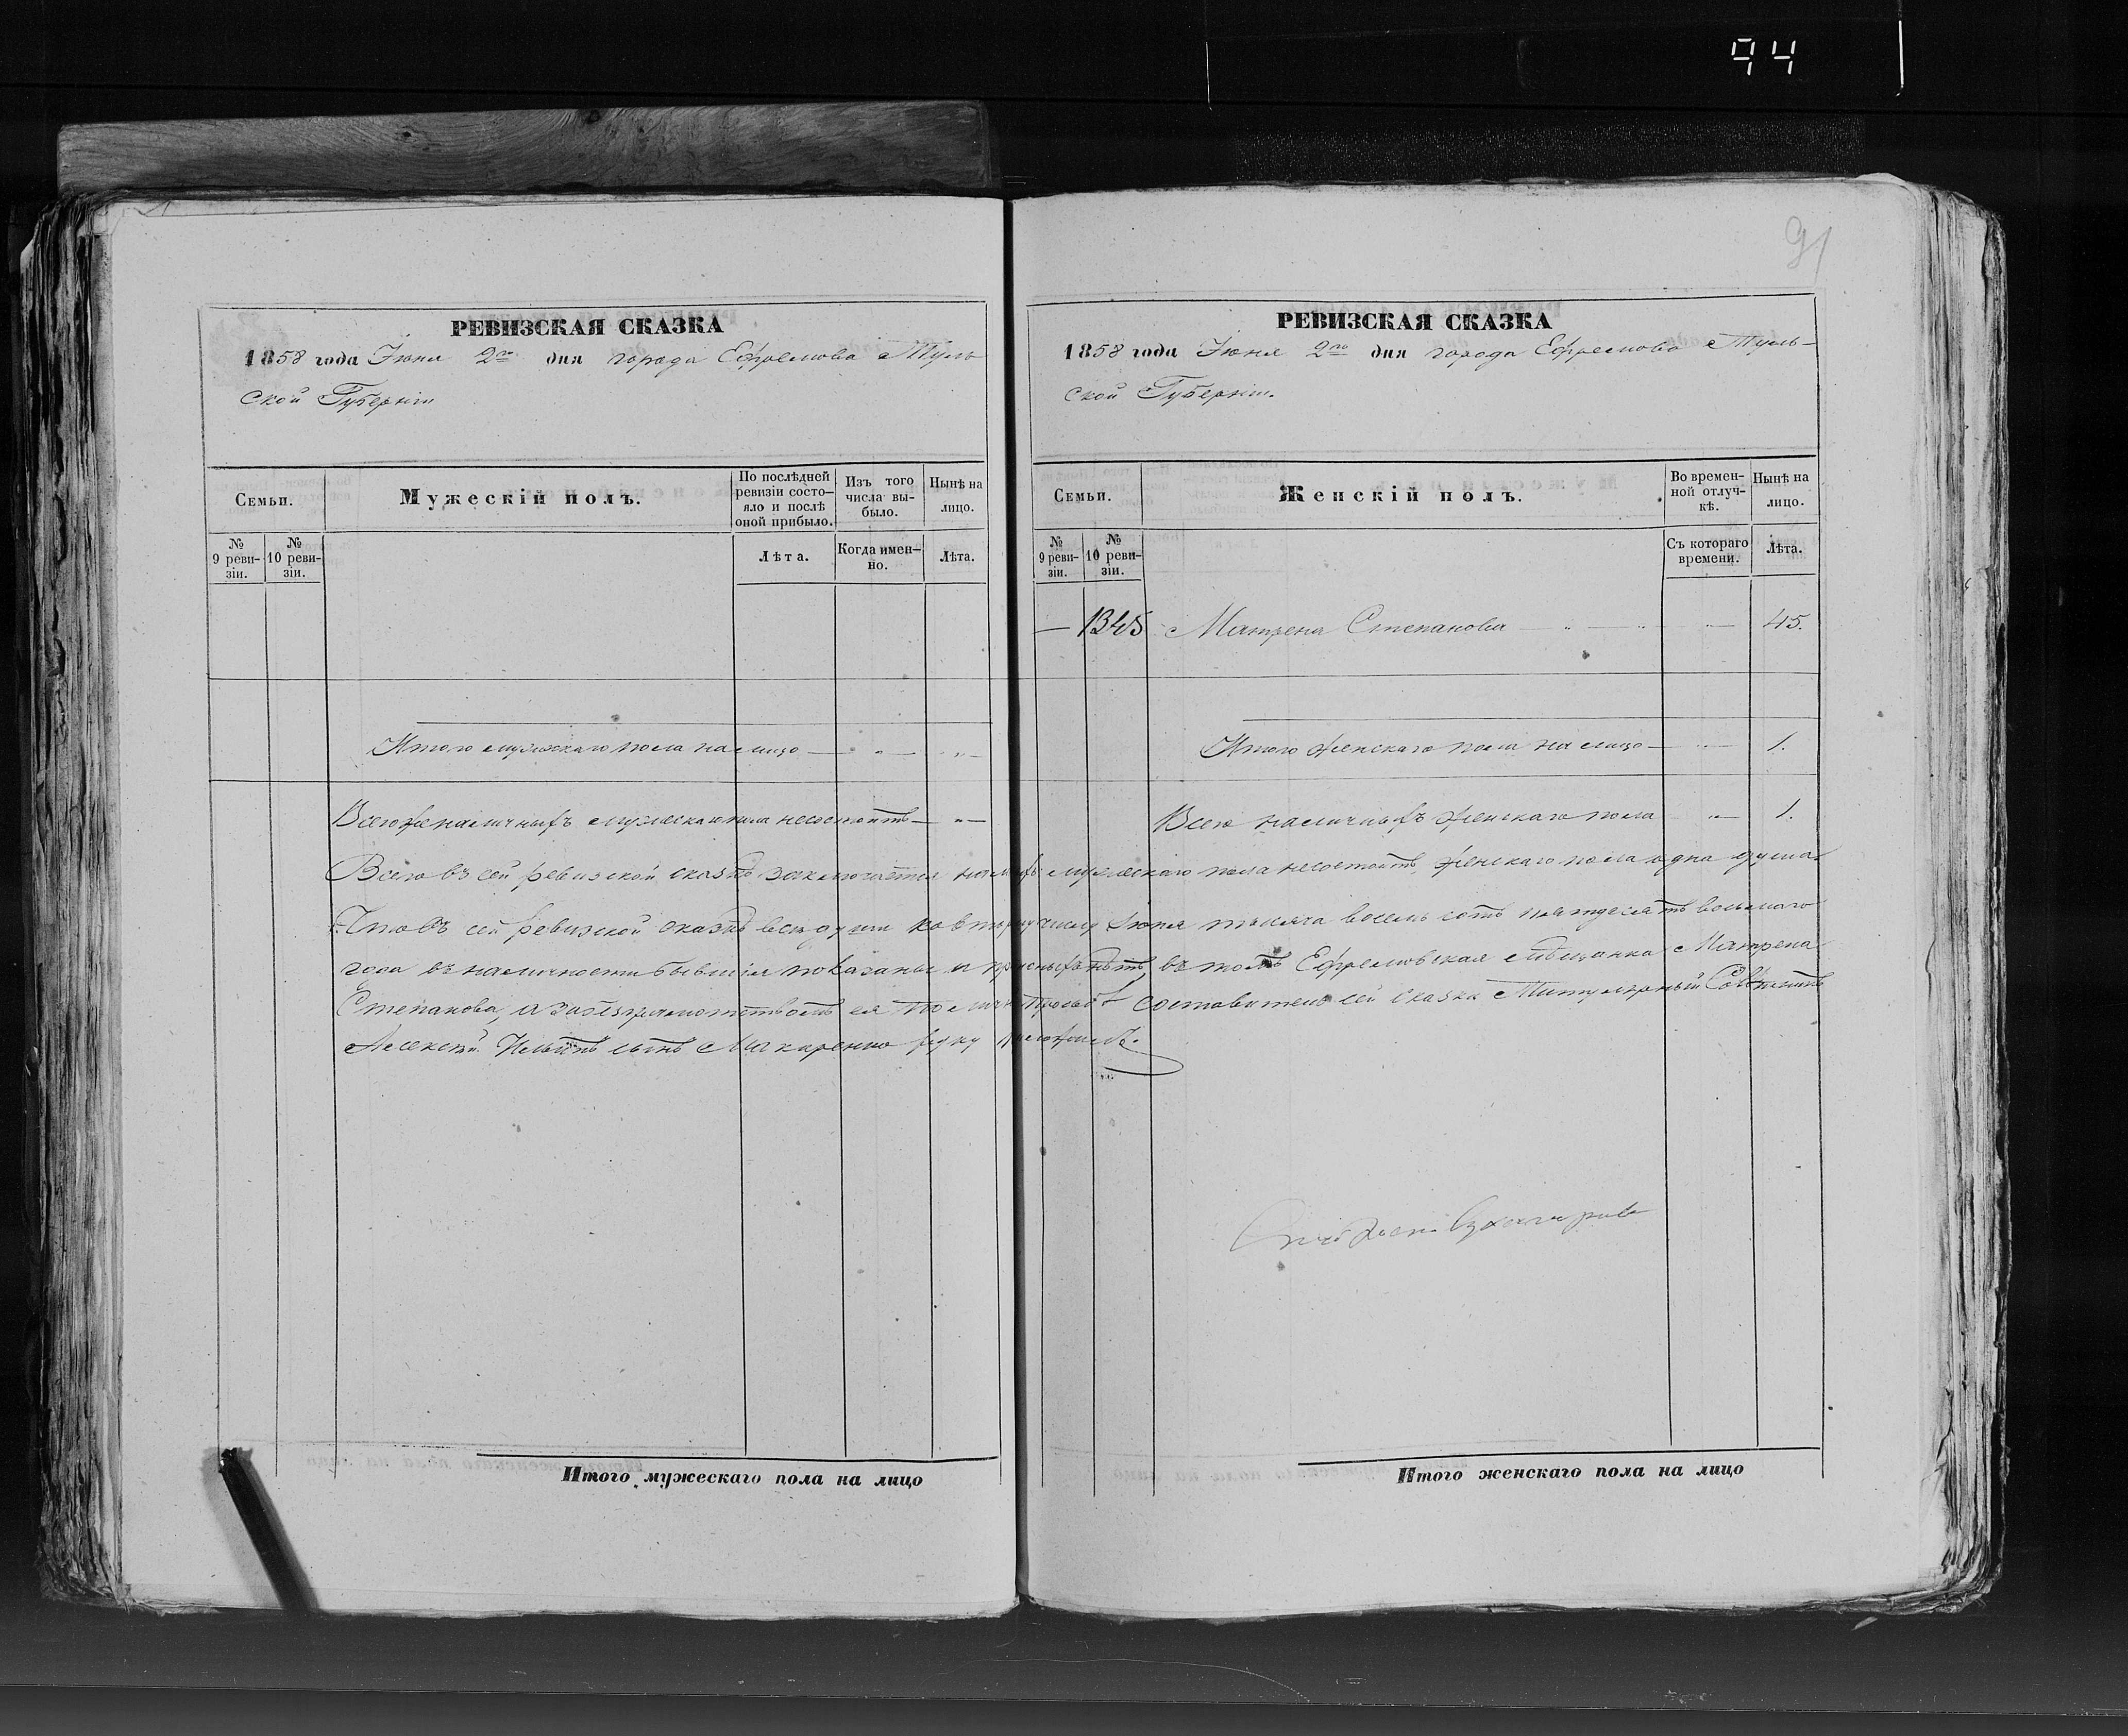 94
91
РЕВИЗСКАЯ СКАЗКА
1858 года Іюня 2го дня города Ефремова Туль
ской Губерніи
Семьи.
Мужескій полъ.
По послѣдней ревизіи состояло и послѣ оной прибыло.
Изъ того числа выбыло.
Нынѣ на лицо.
№ 9 ревизіи.
№ 10 ревизіи.
Лѣта.
Когда именно.
Лѣта.
Итого мужскаго пола на лицо — " — "
Всего наличныхъ мужеска пола несостоитъ — " —
РЕВИЗСКАЯ СКАЗКА
1858 года Іюня 2го дня города Ефремова Туль-
ской Губерніи.
Семьи.
Женскій полъ.
Во временной отлучкѣ.
Нынѣ на лицо.
№ 9 ревизіи.
№ 10 ревизіи.
Съ котораго времени.
Лѣта.
— 1345 Матрена Степанова — " — " — " — 45.
Итого женскаго пола на лицо — " — 1.
Всего наличныхъ женскаго пола " — 1.
Всего въ сей ревизской сказкѣ заключается мужескаго пола несостоитъ, женскаго пола одна душа.
Что въ сей ревизской сказкѣ всѣ души ко второму числу Іюня тысяча восемь сотъ пятьдесятъ восьмаго
года въ наличности бывшія показаны и прописныхъ нѣтъ, въ томъ Ефремовская мѣщанка Матрена
Степанова, а за безграмотствомъ ея по личной прозьбѣ составитель сей сказки Титулярный Совѣтникъ
Алексѣй Ильинъ сынъ Макаренко руку приложилъ.
Итого мужескаго пола на лицо
Итого женскаго пола на лицо